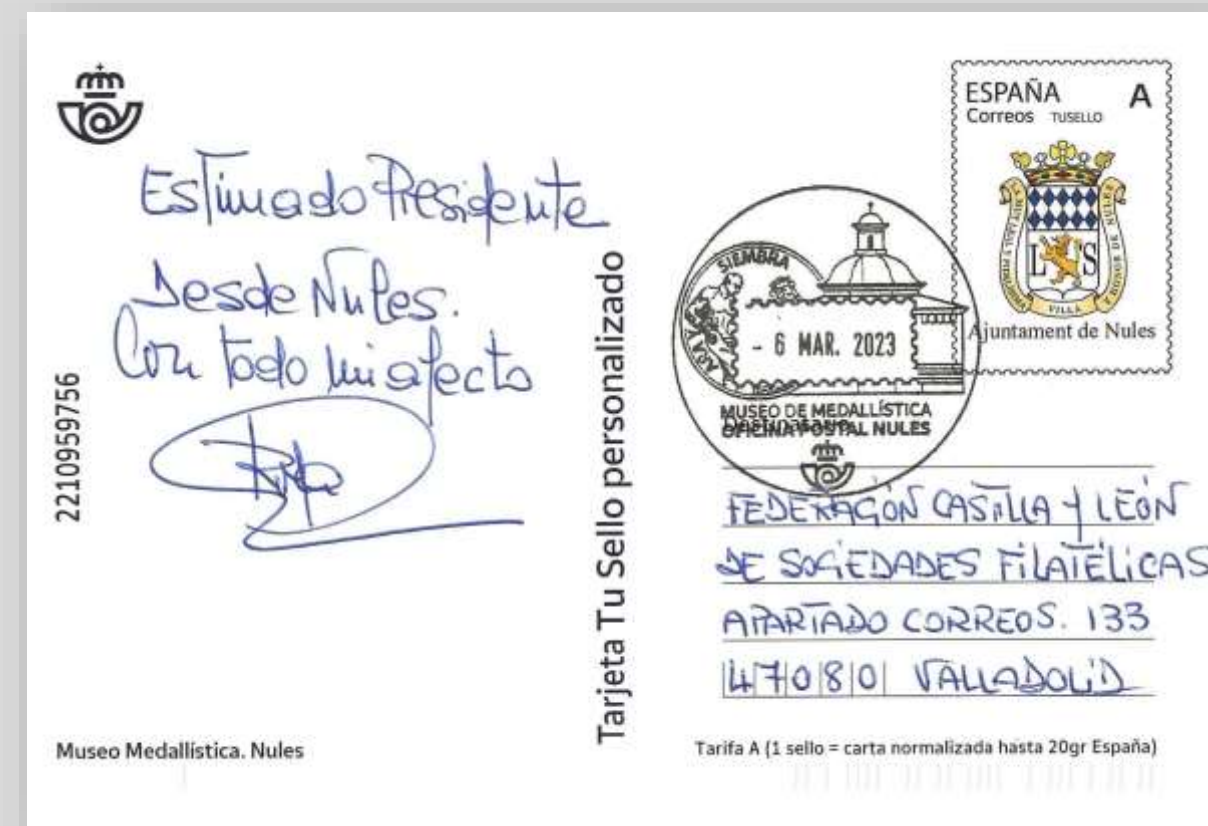 Estimado Presidente
Desde Nules.
Con todo mi afecto
2210959756
Museo Medallística. Nules
Tarjeta Tu Sello personalizado
ESPAÑA A
Correos TUSELLO
VILLA
Ajuntament de Nules
SIEMBRA
- 6 MAR. 2023
MUSEO DE MEDALLÍSTICA
OFICINA POSTAL NULES
Destinatario
FEDERACIÓN CASTILLA Y LEÓN
DE SOCIEDADES FILATÉLICAS
APARTADO CORREOS. 133
47080 VALLADOLID
Tarifa A (1 sello = carta normalizada hasta 20gr España)